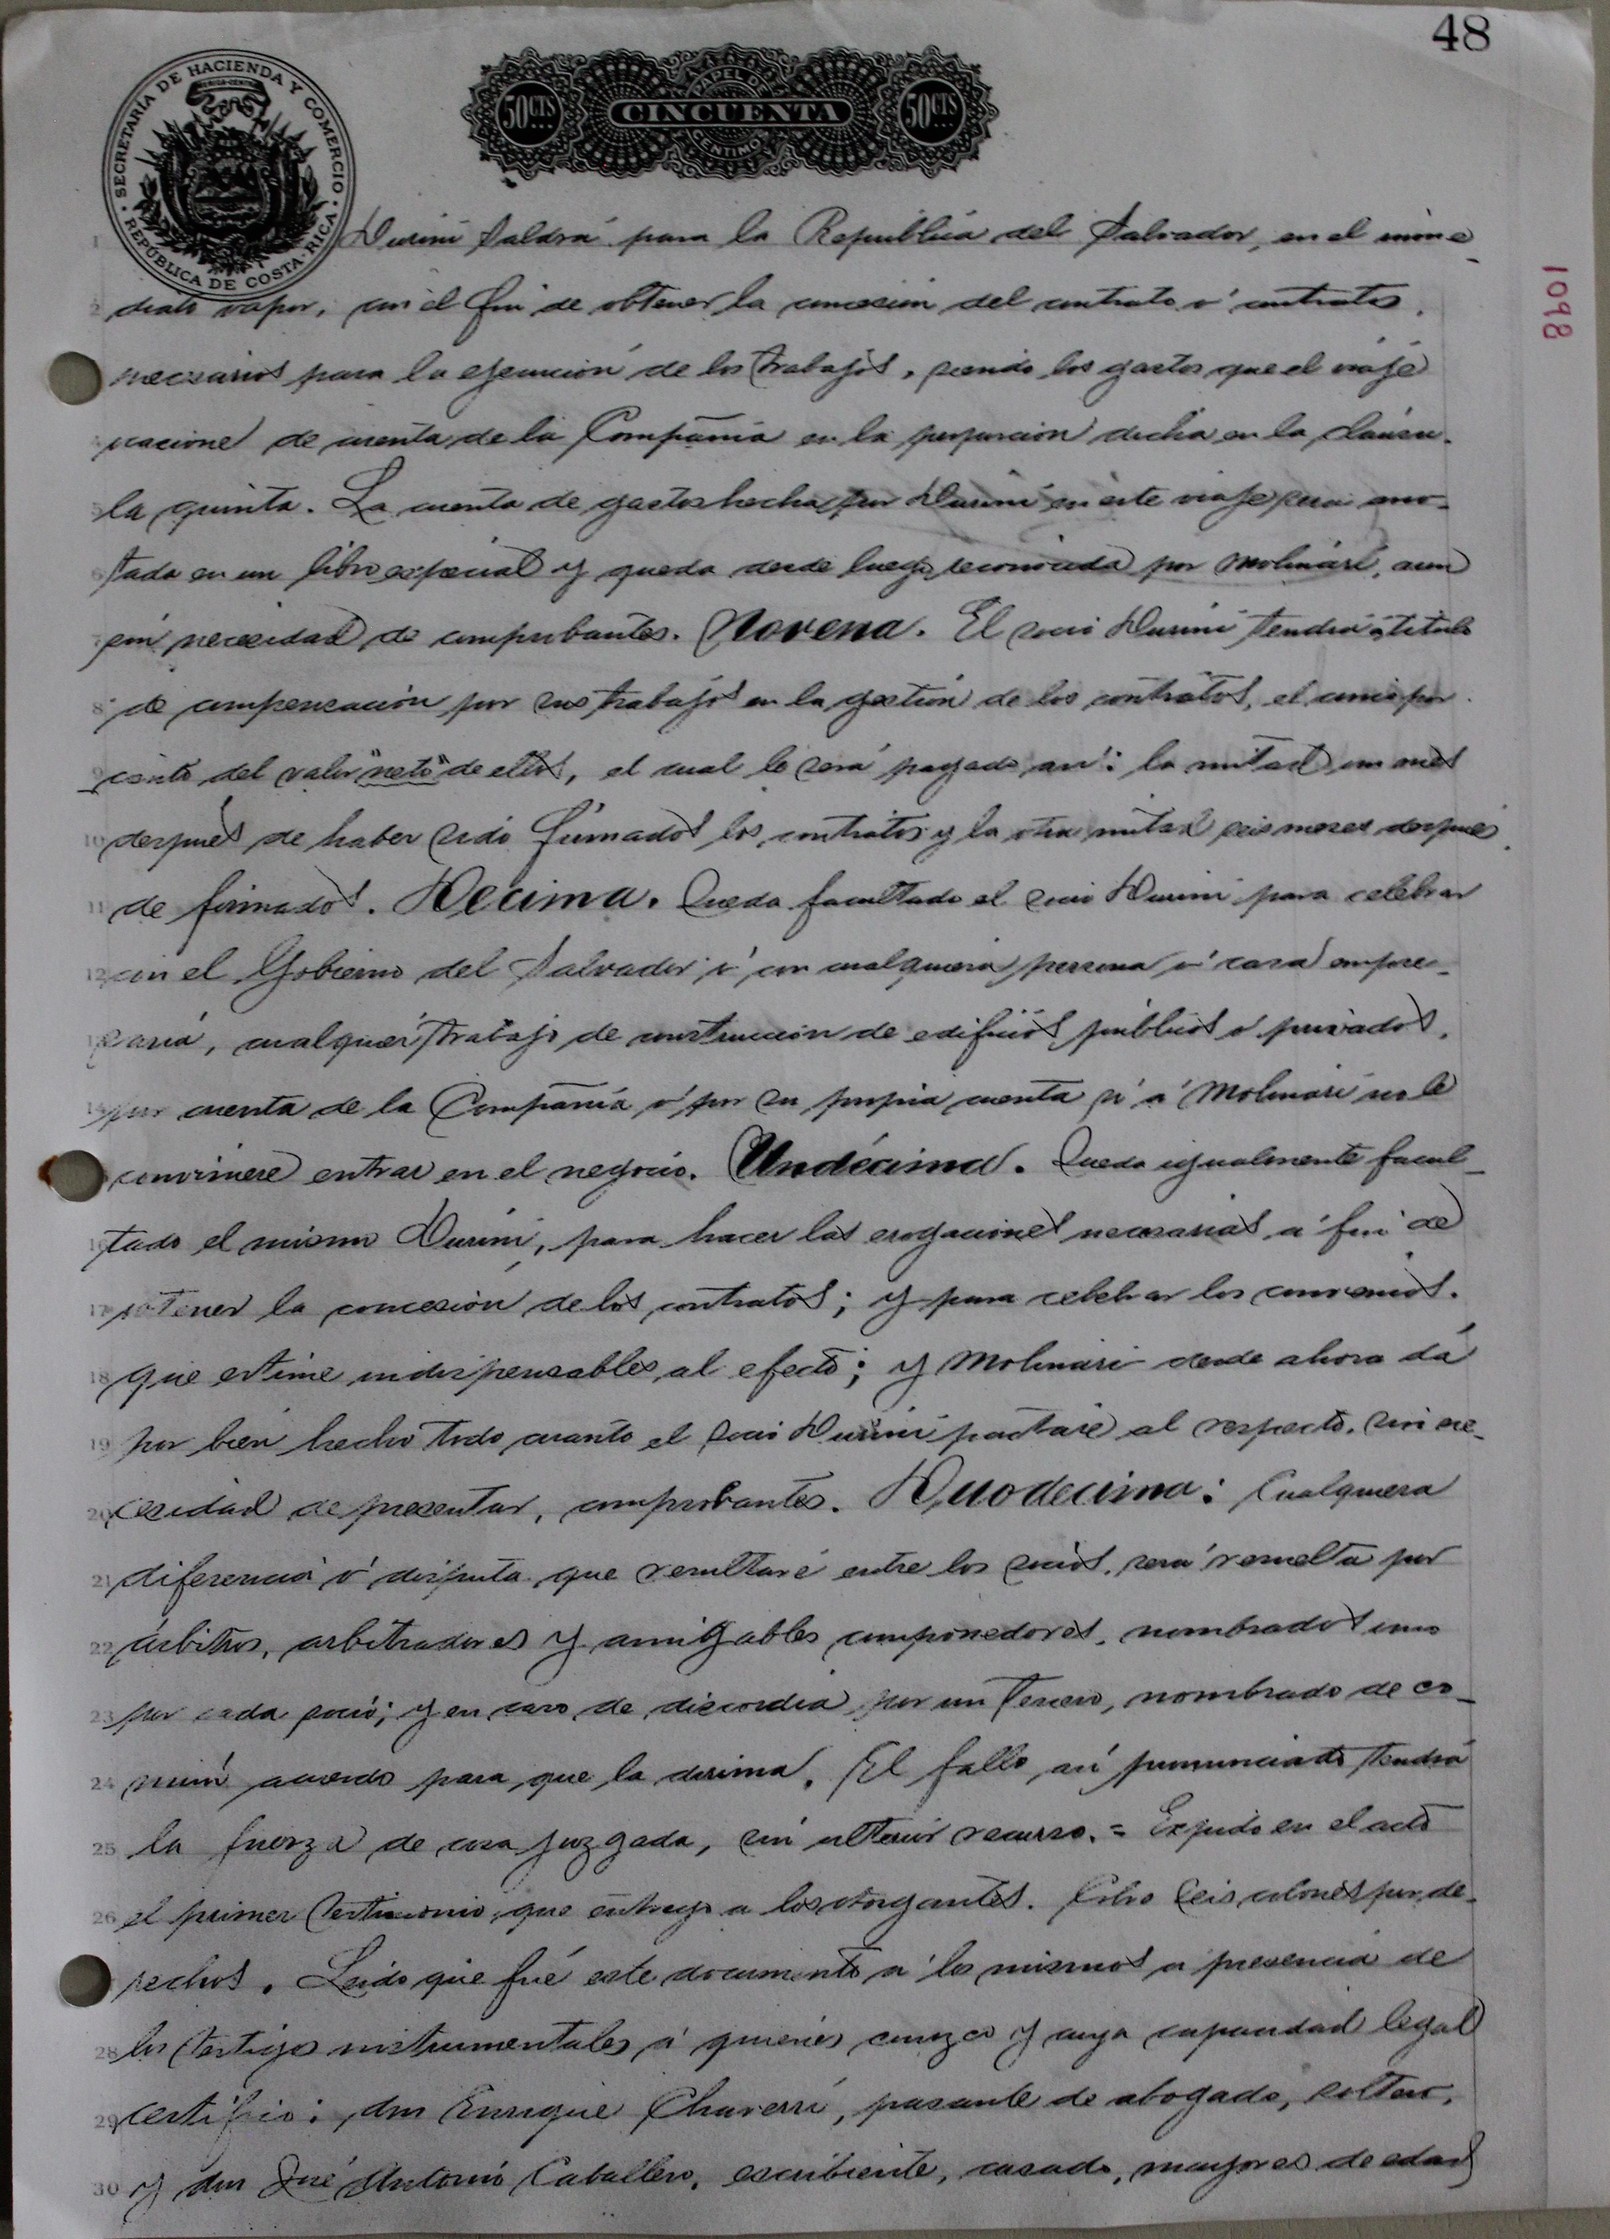 48
SECRETARÍA DE HACIENDA Y COMERCIO
REPÚBLICA DE COSTA RICA
50 CTS PAPEL DE CINCUENTA CENTIMOS 50 CTS
1098
1 Durini saldrá para la República del Salvador, en el inme-
2 diato vapor, con el fin de obtener la concesión del contrato ó contratos
necesarios para la ejecución de los trabajos, siendo los gastos que el viaje
ocacione de cuenta de la Compañía en la proporción dicha en la cláusu-
5 la quinta. La cuenta de gastos hecha por Durini en este viaje será ano-
6 tada en un libro especial y queda desde luego reconocida por Molinari, aun
7 sin necesidad de comprobantes. Novena. El socio Durini tendrá á título
8 de compensación por sus trabajos en la gestión de los contratos, el cinco por
9 ciento del valor "neto" de ellos, el cual le será pagado así: la mitad un mes
10 después de haber sido firmados los contratos y la otra mitad seis meses después
11 de firmados. Décima. Queda facultado el socio Durini para celebrar
12 con el Gobierno del Salvador ó con cualquiera persona ó casa empre-
saria, cualquier trabajo de construcción de edificios públicos ó privados,
14 por cuenta de la Compañía ó por su propia cuenta si á Molinari no le
conviniere entrar en el negocio. Undécima. Queda igualmente facul-
16 tado el mismo Durini, para hacer las erogaciones necesarias á fin de
17 obtener la concesión de los contratos; y para celebrar los convenios
18 que estime indispensables al efecto; y Molinari desde ahora dá
19 por bien hecho todo cuanto el socio Durini pactare al respecto, sin ne-
20 cesidad de presentar, comprobantes. Duodecima: Cualquiera
21 diferencia ó disputa que resultare entre los socios, será resuelta por
22 árbitros, arbitradores y amigables componedores, nombrados uno
23 por cada socio; y en caso de discordia por un tercero, nombrado de co-
24 mún acuerdo para que la dirima. El fallo así pronunciado tendrá
25 la fuerza de cosa juzgada, sin ulterior recurso. = Expido en el acto
26 el primer testimonio que entrego a los otorgantes. Cobro seis colones por de-
rechos. Leído que fué este documento á los mismos a presencia de
28 los testigos instrumentales á quienes conozco y cuya capacidad legal
29 certifico: don Enrique Chaverri, pasante de abogado, soltero,
30 y don José Antonio Caballero, escribiente, casado, mayores de edad